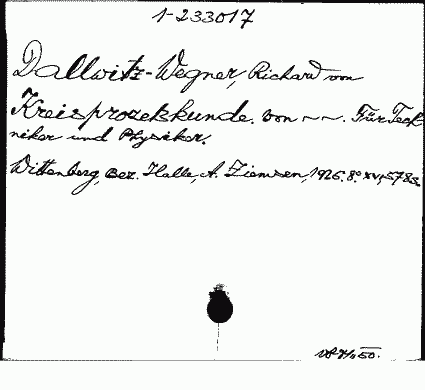 1-233017
Dallwitz-Wegner, Richard von
Kreisprozekkunde. von ~~. Für Tech
niker und Physiker.
Wittenberg, Bez. Halle, A. Ziemsen, 1926. 8° XVI, 578 S.
50.